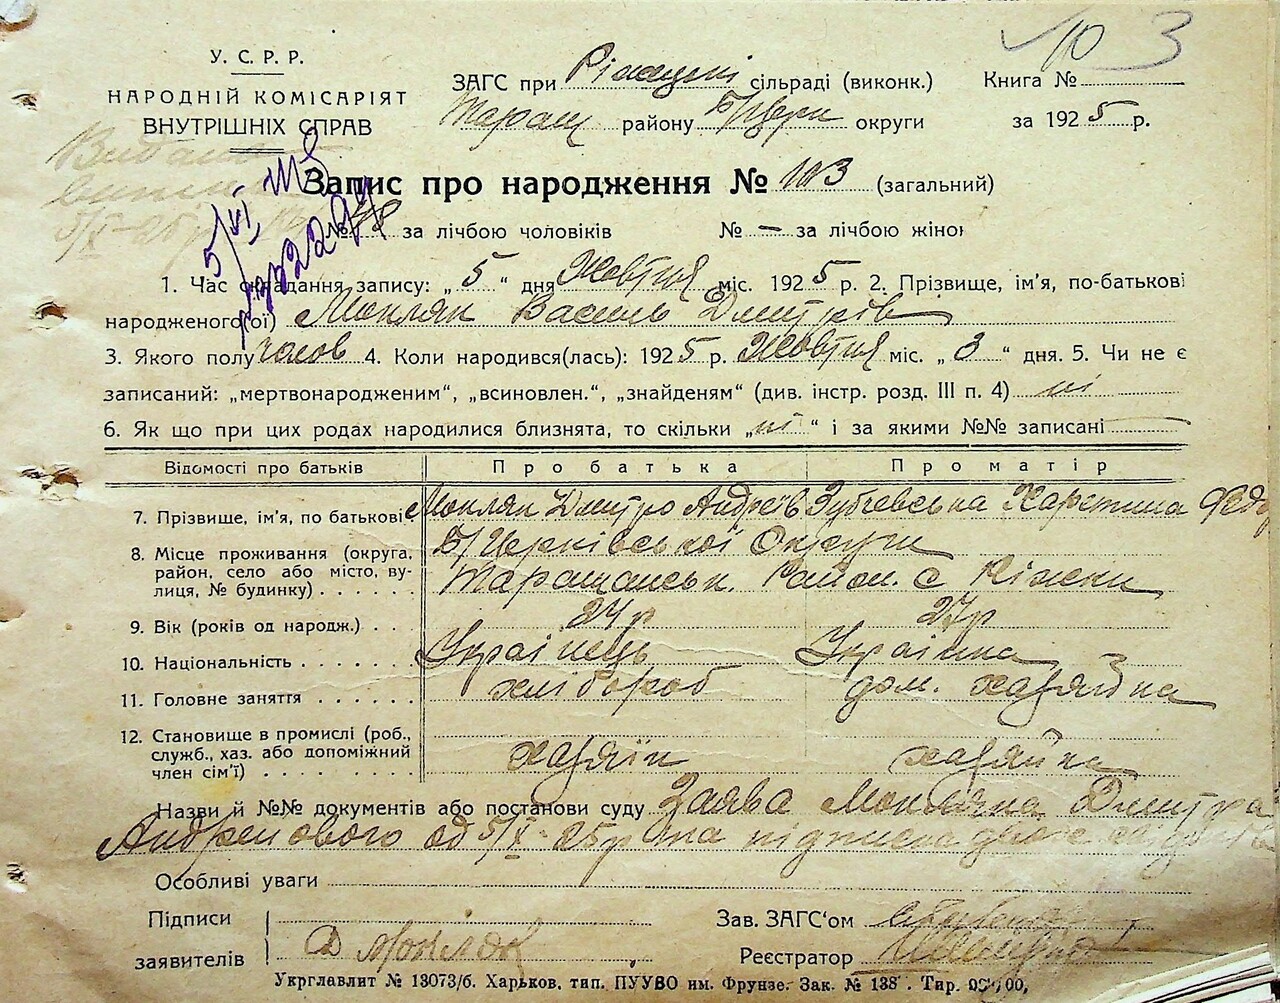 У. С. Р. Р.
НАРОДНІЙ КОМІСАРІЯТ
ВНУТРІШНІХ СПРАВ
ЗАГС при сільраді (виконк.)
Таращ району Б/Церк округи
Книга №
за 1925 р.
10 3
Запис про народження № 103 (загальний)
№ 48 за лічбою чоловіків № — за лічбою жінок
1. Час складання запису: „5“ дня Жовтня міс. 1925 р. 2. Прізвище, ім'я, по-батькові
народженого(ої) Мокляк Василь Дмитрів
3. Якого полу чолов 4. Коли народився(лась): 1925 р. Жовтня міс. „3“ дня. 5. Чи не є
записаний: „мертвонародженим“, „всиновлен.“, „знайденям“ (див. інстр. розд. III п. 4) ні
6. Як що при цих родах народилися близнята, то скільки „ні“ і за якими №№ записані
Відомості про батьків Про батька Про матір
7. Прізвище, ім'я, по батькові Мокляк Дмитро Андреїв Зубчевська Харетина Федо
8. Місце проживання (округа, район, село або місто, вулиця, № будинку) Б/Церківської Округи
Таращанськ. Район. с Ріжки
9. Вік (років од народж.) 24 р 27 р
10. Національність Українець Українка
11. Головне заняття хлібороб дом. хазяйка
12. Становище в промислі (роб., служб., хаз. або допоміжний член сім'ї) хазяїн хазяйка
Назви й №№ документів або постанови суду Заява Мокляка Дмитра
Андреїового од 5/X-25 р та підписка двох свідків
Особливі уваги
Підписи
заявителів Д Мокляк
Зав. ЗАГС'ом
Реєстратор
Укрглавлит № 13073/б. Харьков, тип. ПУУВО им. Фрунзе. Зак. № 138 . Тир.